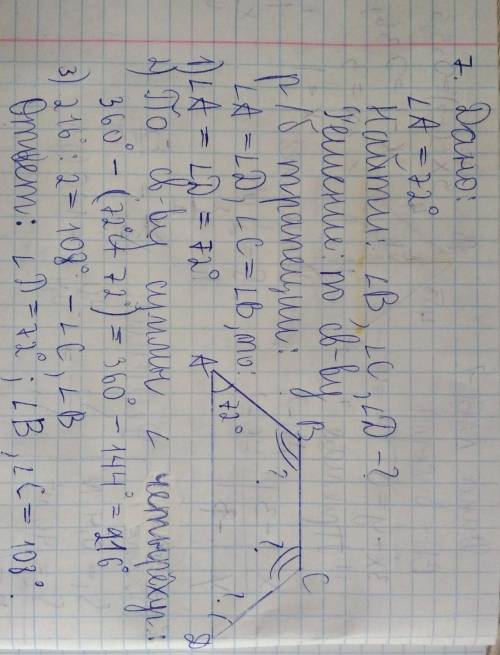 7. Дано:
∠A = 72°
Найти: ∠B, ∠C, ∠D - ?
Решение: по св-ву
р/б трапеции:
∠A = ∠D, ∠C = ∠B, то:
1) ∠A = ∠D = 72°
2) По св-ву суммы ∠ четырёхуг.:
360° - (72°+72°) = 360° - 144° = 216°
3) 216 : 2 = 108° - ∠C, ∠B
Ответ: ∠D = 72°; ∠B, ∠C = 108°.
B
C
?
?
A
72°
?
D